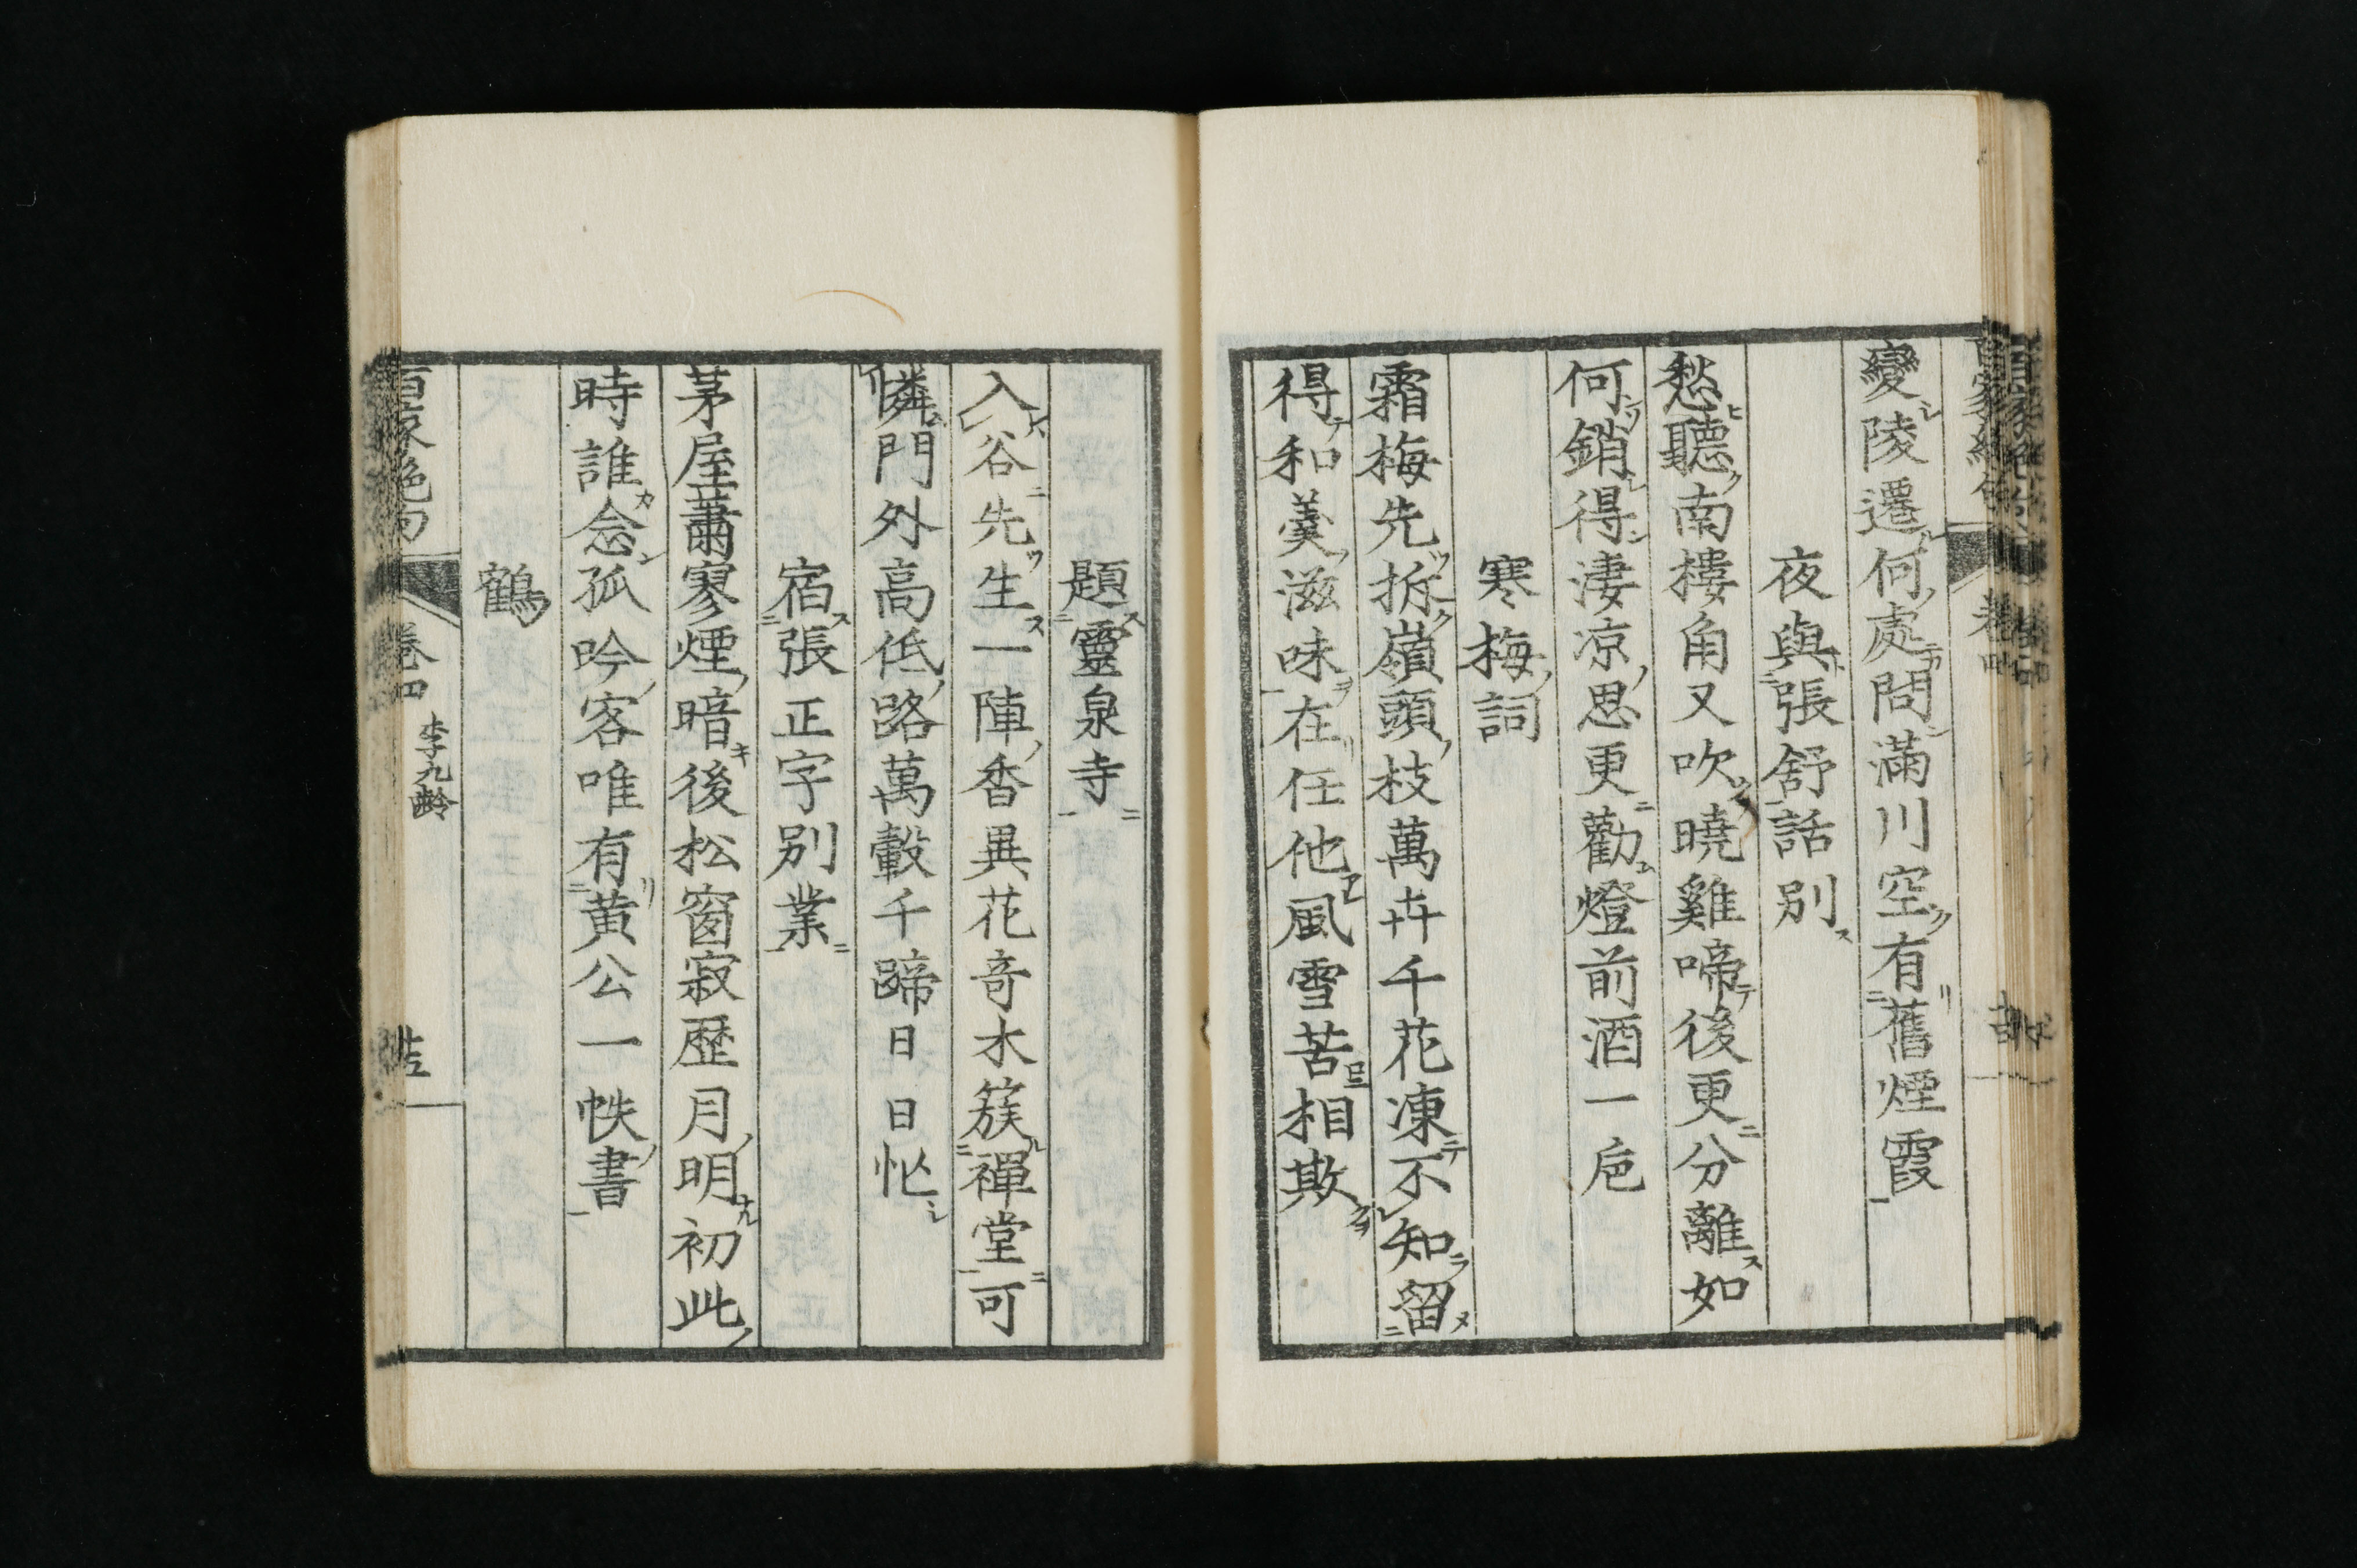 變陵遷何處問滿川空有舊煙霞
夜與張舒話別
愁聽南樓角又吹曉雞啼後更分離如
何銷得淒凉思更勸燈前酒一巵
寒梅詞
霜梅先拆嶺頭枝萬卉千花凍不知留
得和羹滋味在任他風雪苦相欺
題靈泉寺
入谷先生一陣香異花奇木簇禪堂可
憐門外高低路萬轂千蹄日日忙
宿張正字別業
茅屋蕭寥煙暗後松窗寂歷月明初此
時誰念孤吟客唯有黃公一帙書
鶴
百家絶句 卷四 李九齡